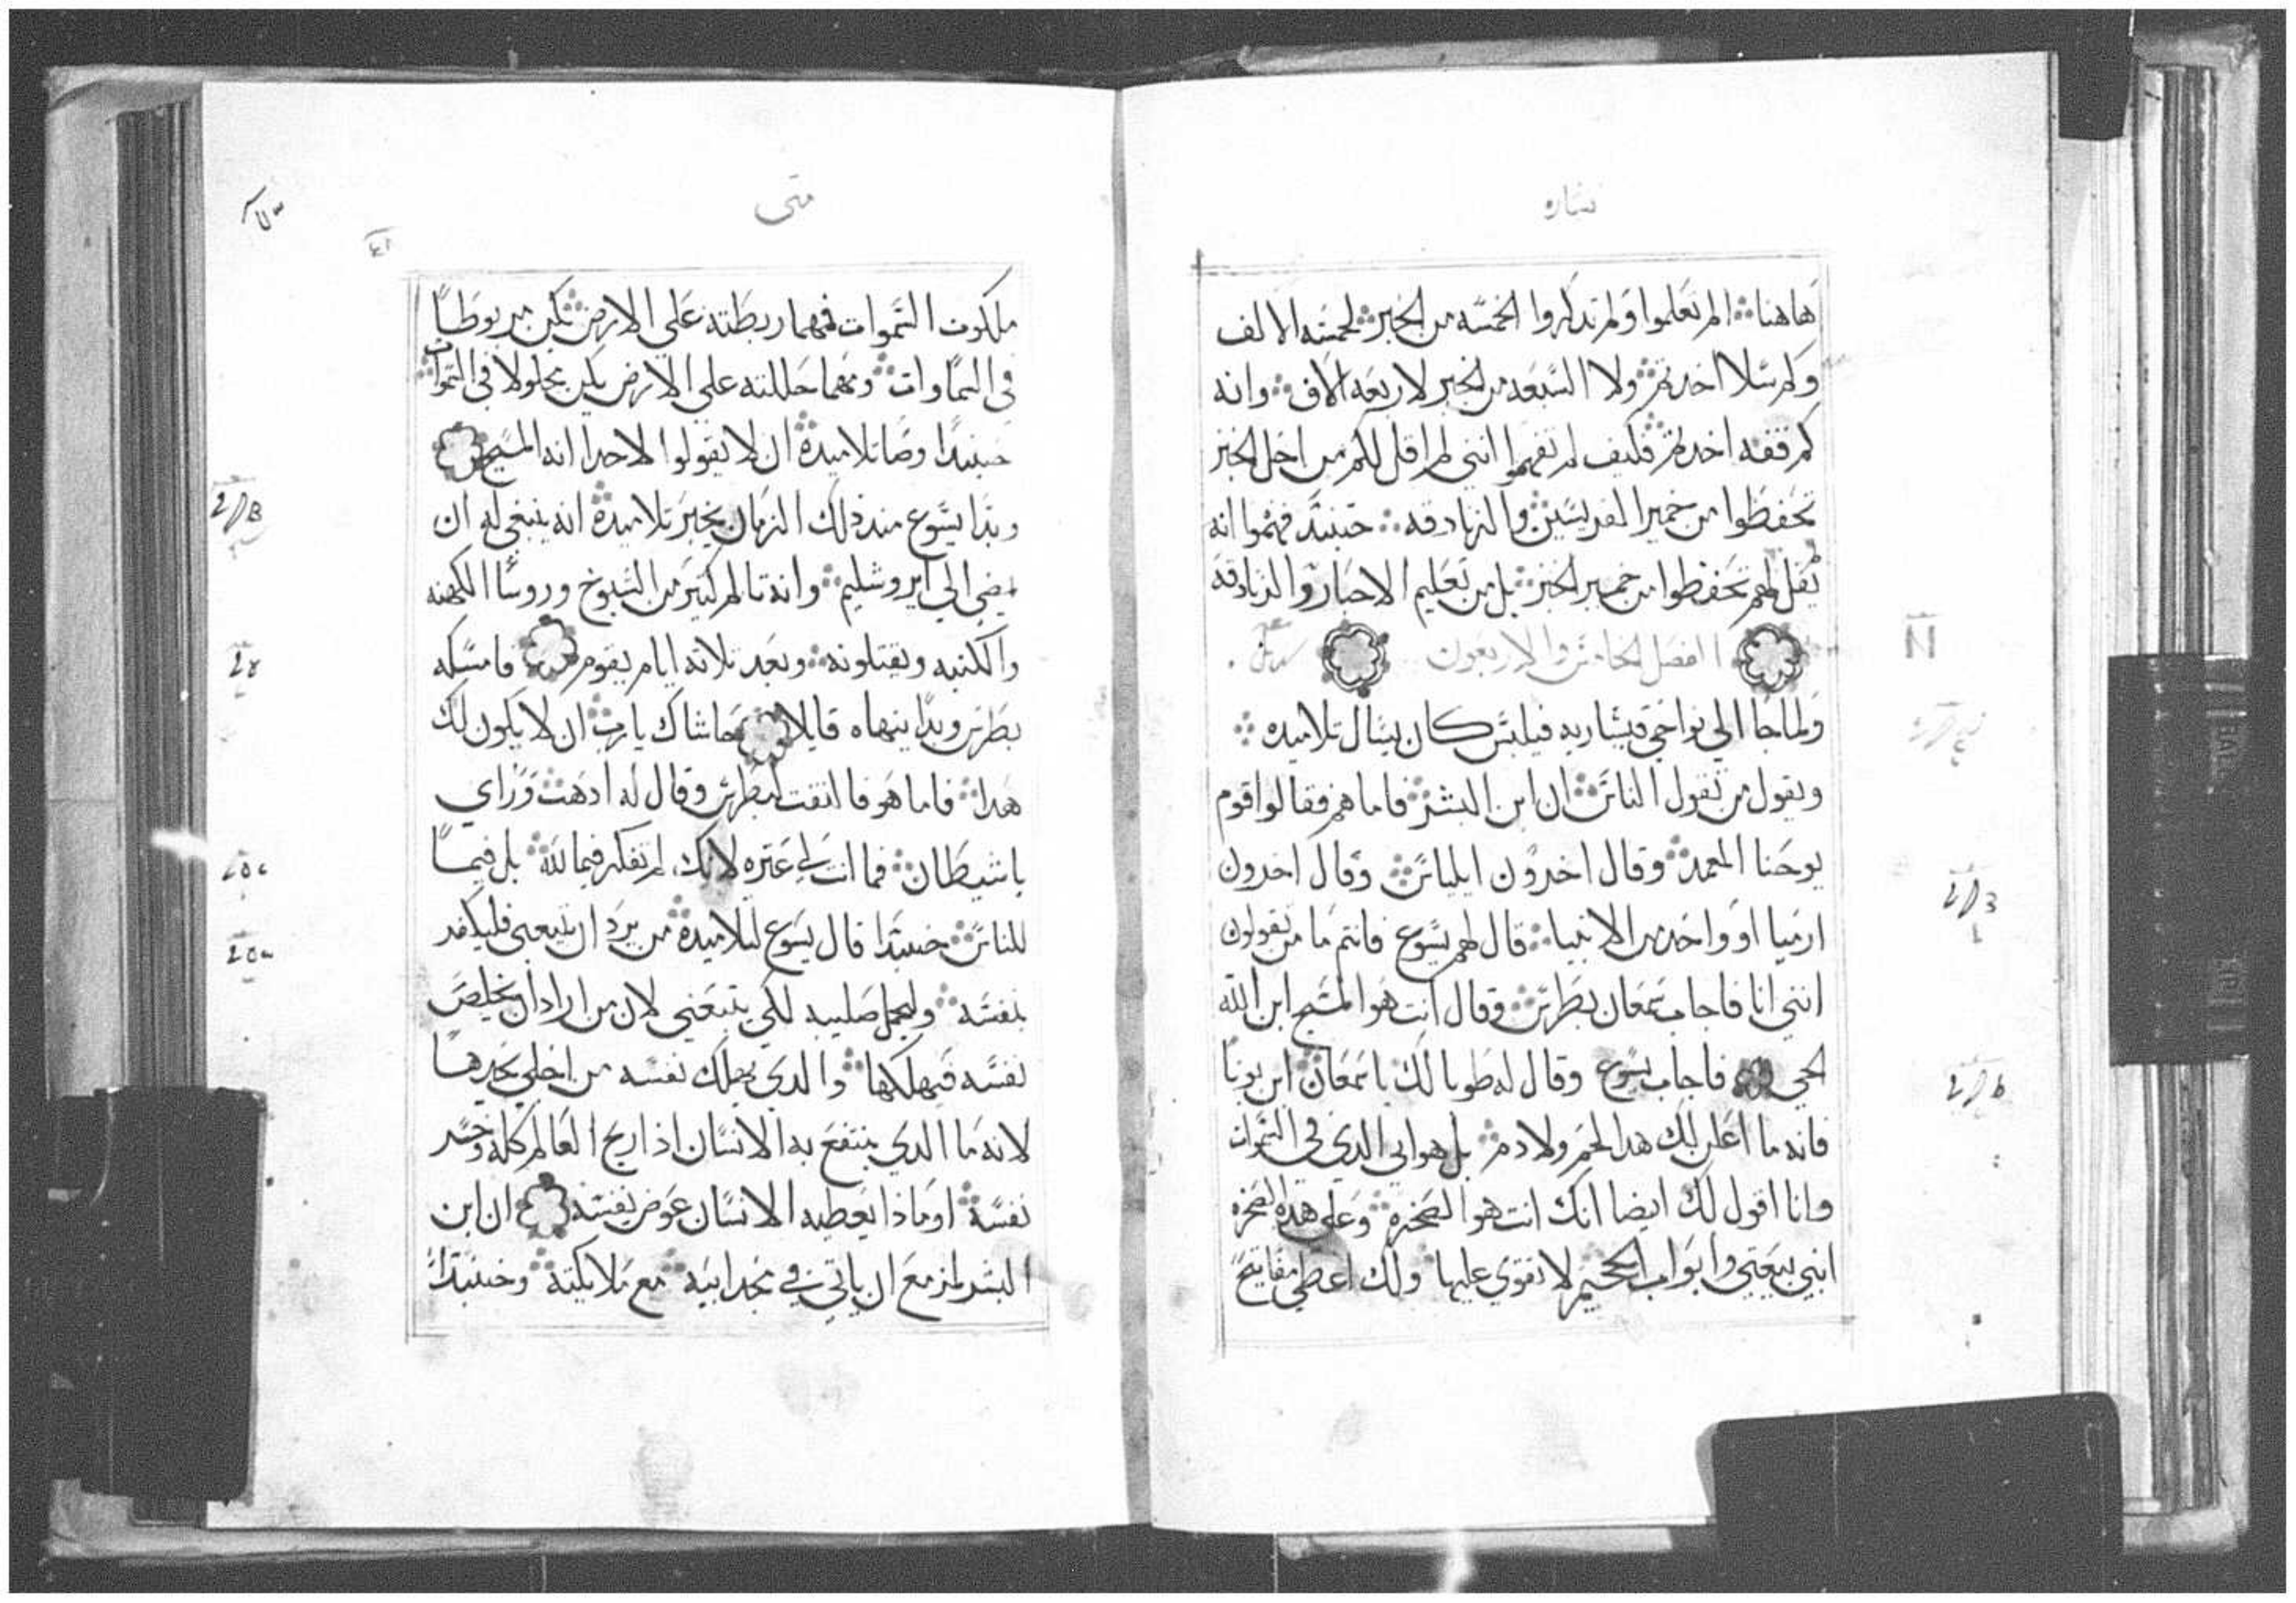 بشاره
هاهنا الم تعلموا ولم تذكروا الخمسه من الخبز لخمسه الالف
وكم سلا اخدتم ولا السبعه من الخبز لاربعه الاف وانه
كم قفه اخدتم فكيف لم تفهموا انني لم اقل لكم من اجل الخبز
تحفظوا من خمير الفريسين والزنادقه حينيد فهموا انه
لم يقل لهم تحفظوا من خمير الخبز بل من تعليم الاحبار والزنادقه
الفصل الخامس والاربعون
ولما جا الي نواحي قيساريه فيلبس كان يسال تلاميده
ويقول من تقول الناس ان ابن البشر فاما هم فقالوا قوم
يوحنا المعمد وقال اخرون ايلياس وقال اخرون
ارميا او واحد من الانبيا قال لهم يسوع فانتم ما من تقولون
انني انا فاجاب سمعان بطرس وقال انت هو المسيح ابن الله
الحي فاجاب يسوع وقال له طوبا لك يا سمعان ابن يونا
فانه ما اعلن لك هدا لحم ولا دم بل هو ابي الدي في السموات
وانا اقول لك ايضا انك انت هو الصخره وعلي هده الصخره
ابني بيعتي وابواب الجحيم لا تقوي عليها ولك اعطي مفاتيح
متى
ملكوت السموات فمهما ربطته علي الارض يكن مربوطا
في السماوات ومهما حللته علي الارض يكن محلولا في السموات
حينيدا وصا تلاميده ان لا يقولوا لاحدا انه المسيح
وبدا يسوع مند ذلك الزمان يخبر تلاميده انه ينبغي له ان
يمضي الي ايروشليم وانه تالم كتير من الشيوخ وروسا الكهنه
والكتبه ويقتلونه وبعد تلاته ايام يقوم فامسكه
بطرس وبدا ينهاه قايلا حاشاك يا رب ان لا يكون لك
هدا فاما هو فالتفت لبطرس وقال له ادهب وراي
يا شيطان فما انت لي عتره لانك لم تفكر فيما لله بل فيما
للناس حينيدا قال يسوع لتلاميده من يرد ان يتبعني فليكفر
بنفسه وليحمل صليبه لكي يتبعني لان من اراد ان يخلص
نفسه فيهلكها والدي يهلك نفسه من اجلي يجدها
لانه ما الدي ينتفع به الانسان اذا ربح العالم كله وخسر
نفسه او ماذا يعطيه الانسان عوض نفسه ان ابن
البشر لمزمع ان ياتي في مجد ابيه مع ملايكته وحينيدا